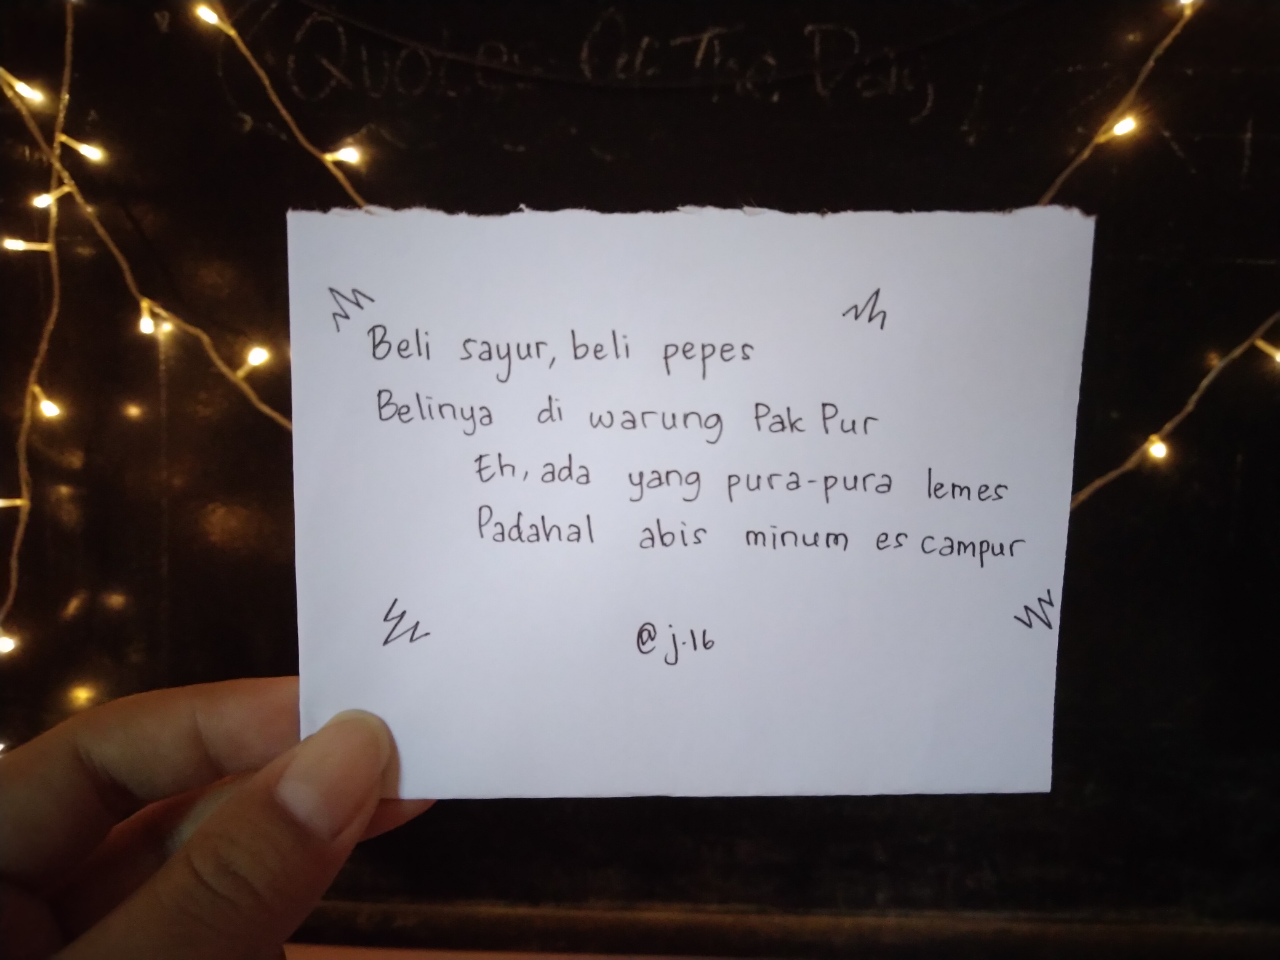 Quotes Of The Day
Beli sayur, beli pepes
Belinya di warung Pak Pur
Eh, ada yang pura-pura lemes
Padahal abis minum es campur
@j.16